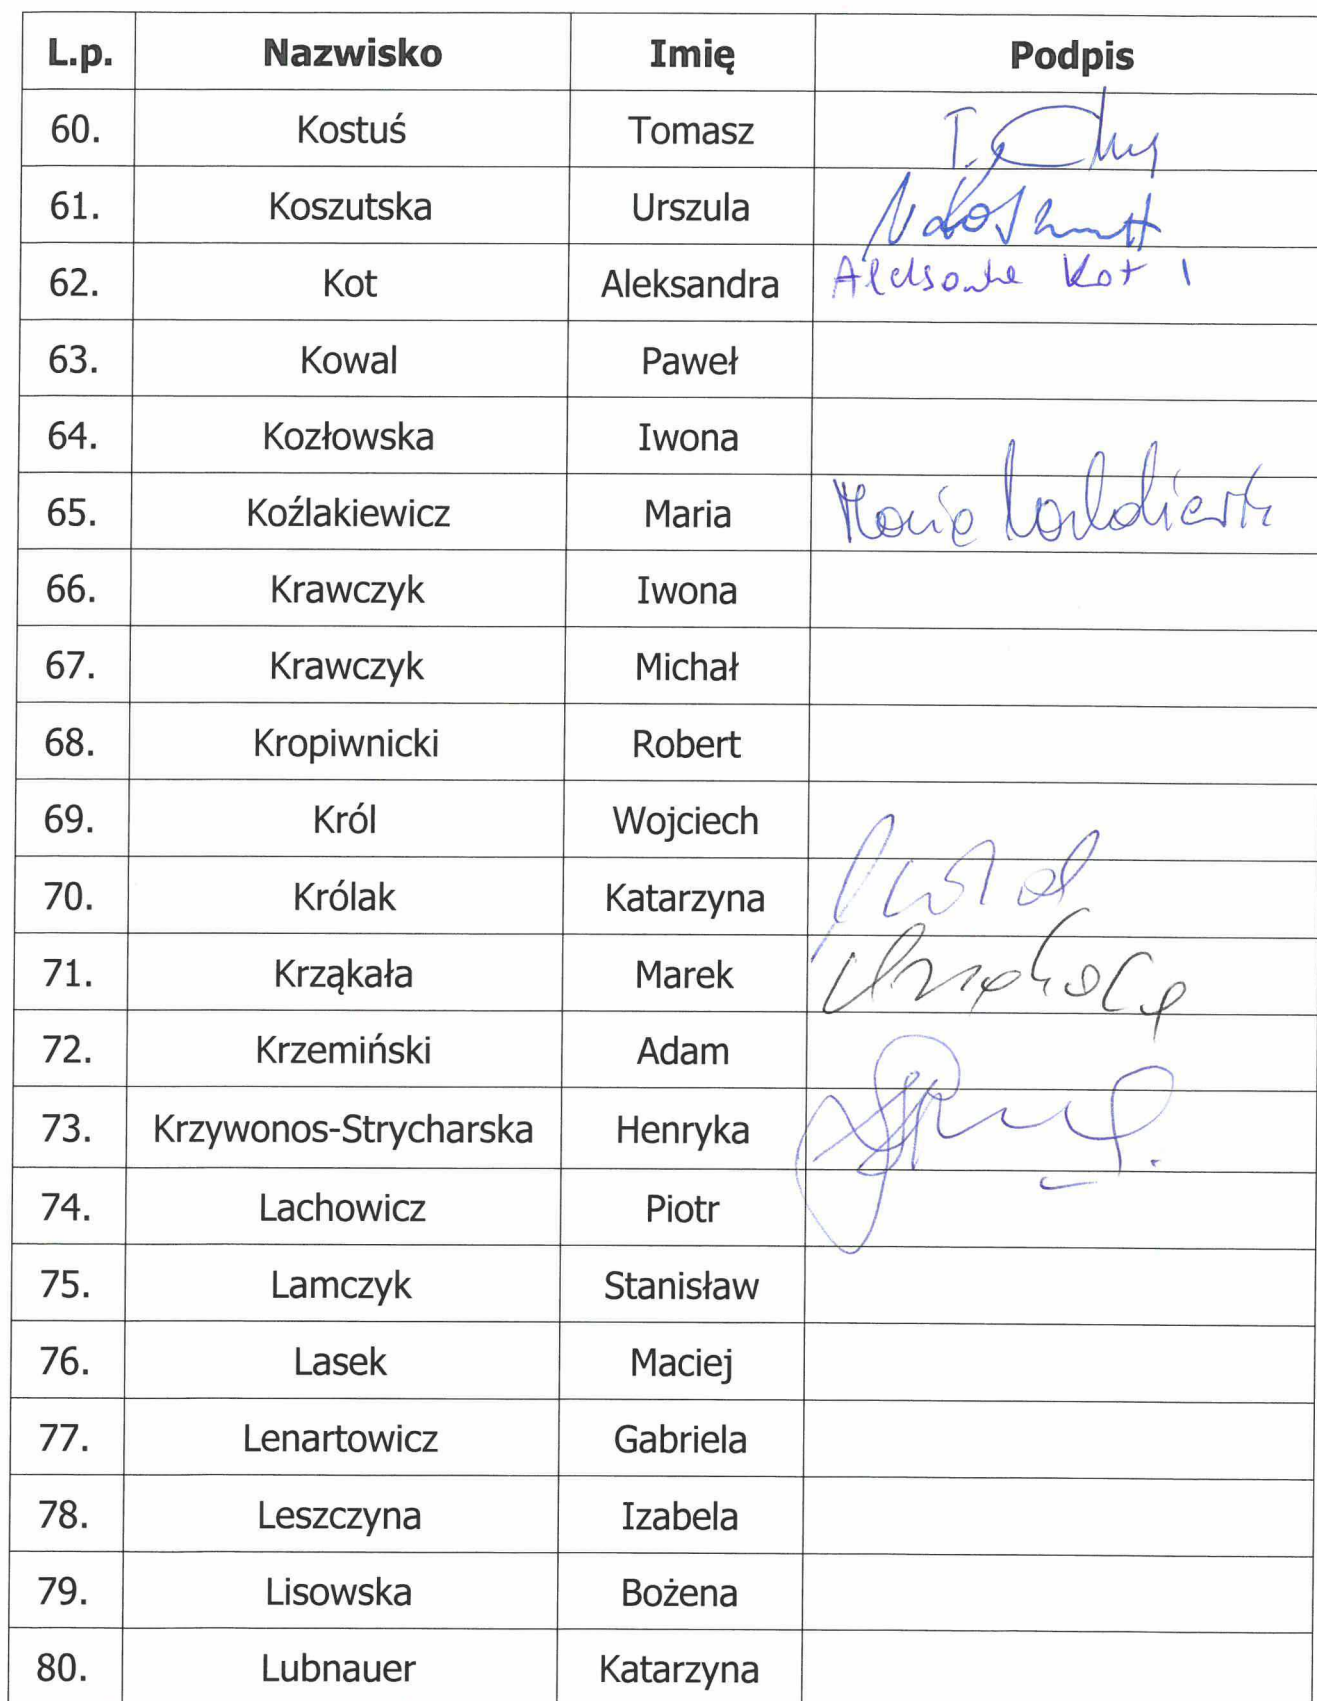 L.p. Nazwisko Imię Podpis
60. Kostuś Tomasz T.
61. Koszutska Urszula
62. Kot Aleksandra Aleksandra Kot
63. Kowal Paweł
64. Kozłowska Iwona
65. Koźlakiewicz Maria Maria
66. Krawczyk Iwona
67. Krawczyk Michał
68. Kropiwnicki Robert
69. Król Wojciech
70. Królak Katarzyna
71. Krząkała Marek
72. Krzemiński Adam
73. Krzywonos-Strycharska Henryka
74. Lachowicz Piotr
75. Lamczyk Stanisław
76. Lasek Maciej
77. Lenartowicz Gabriela
78. Leszczyna Izabela
79. Lisowska Bożena
80. Lubnauer Katarzyna